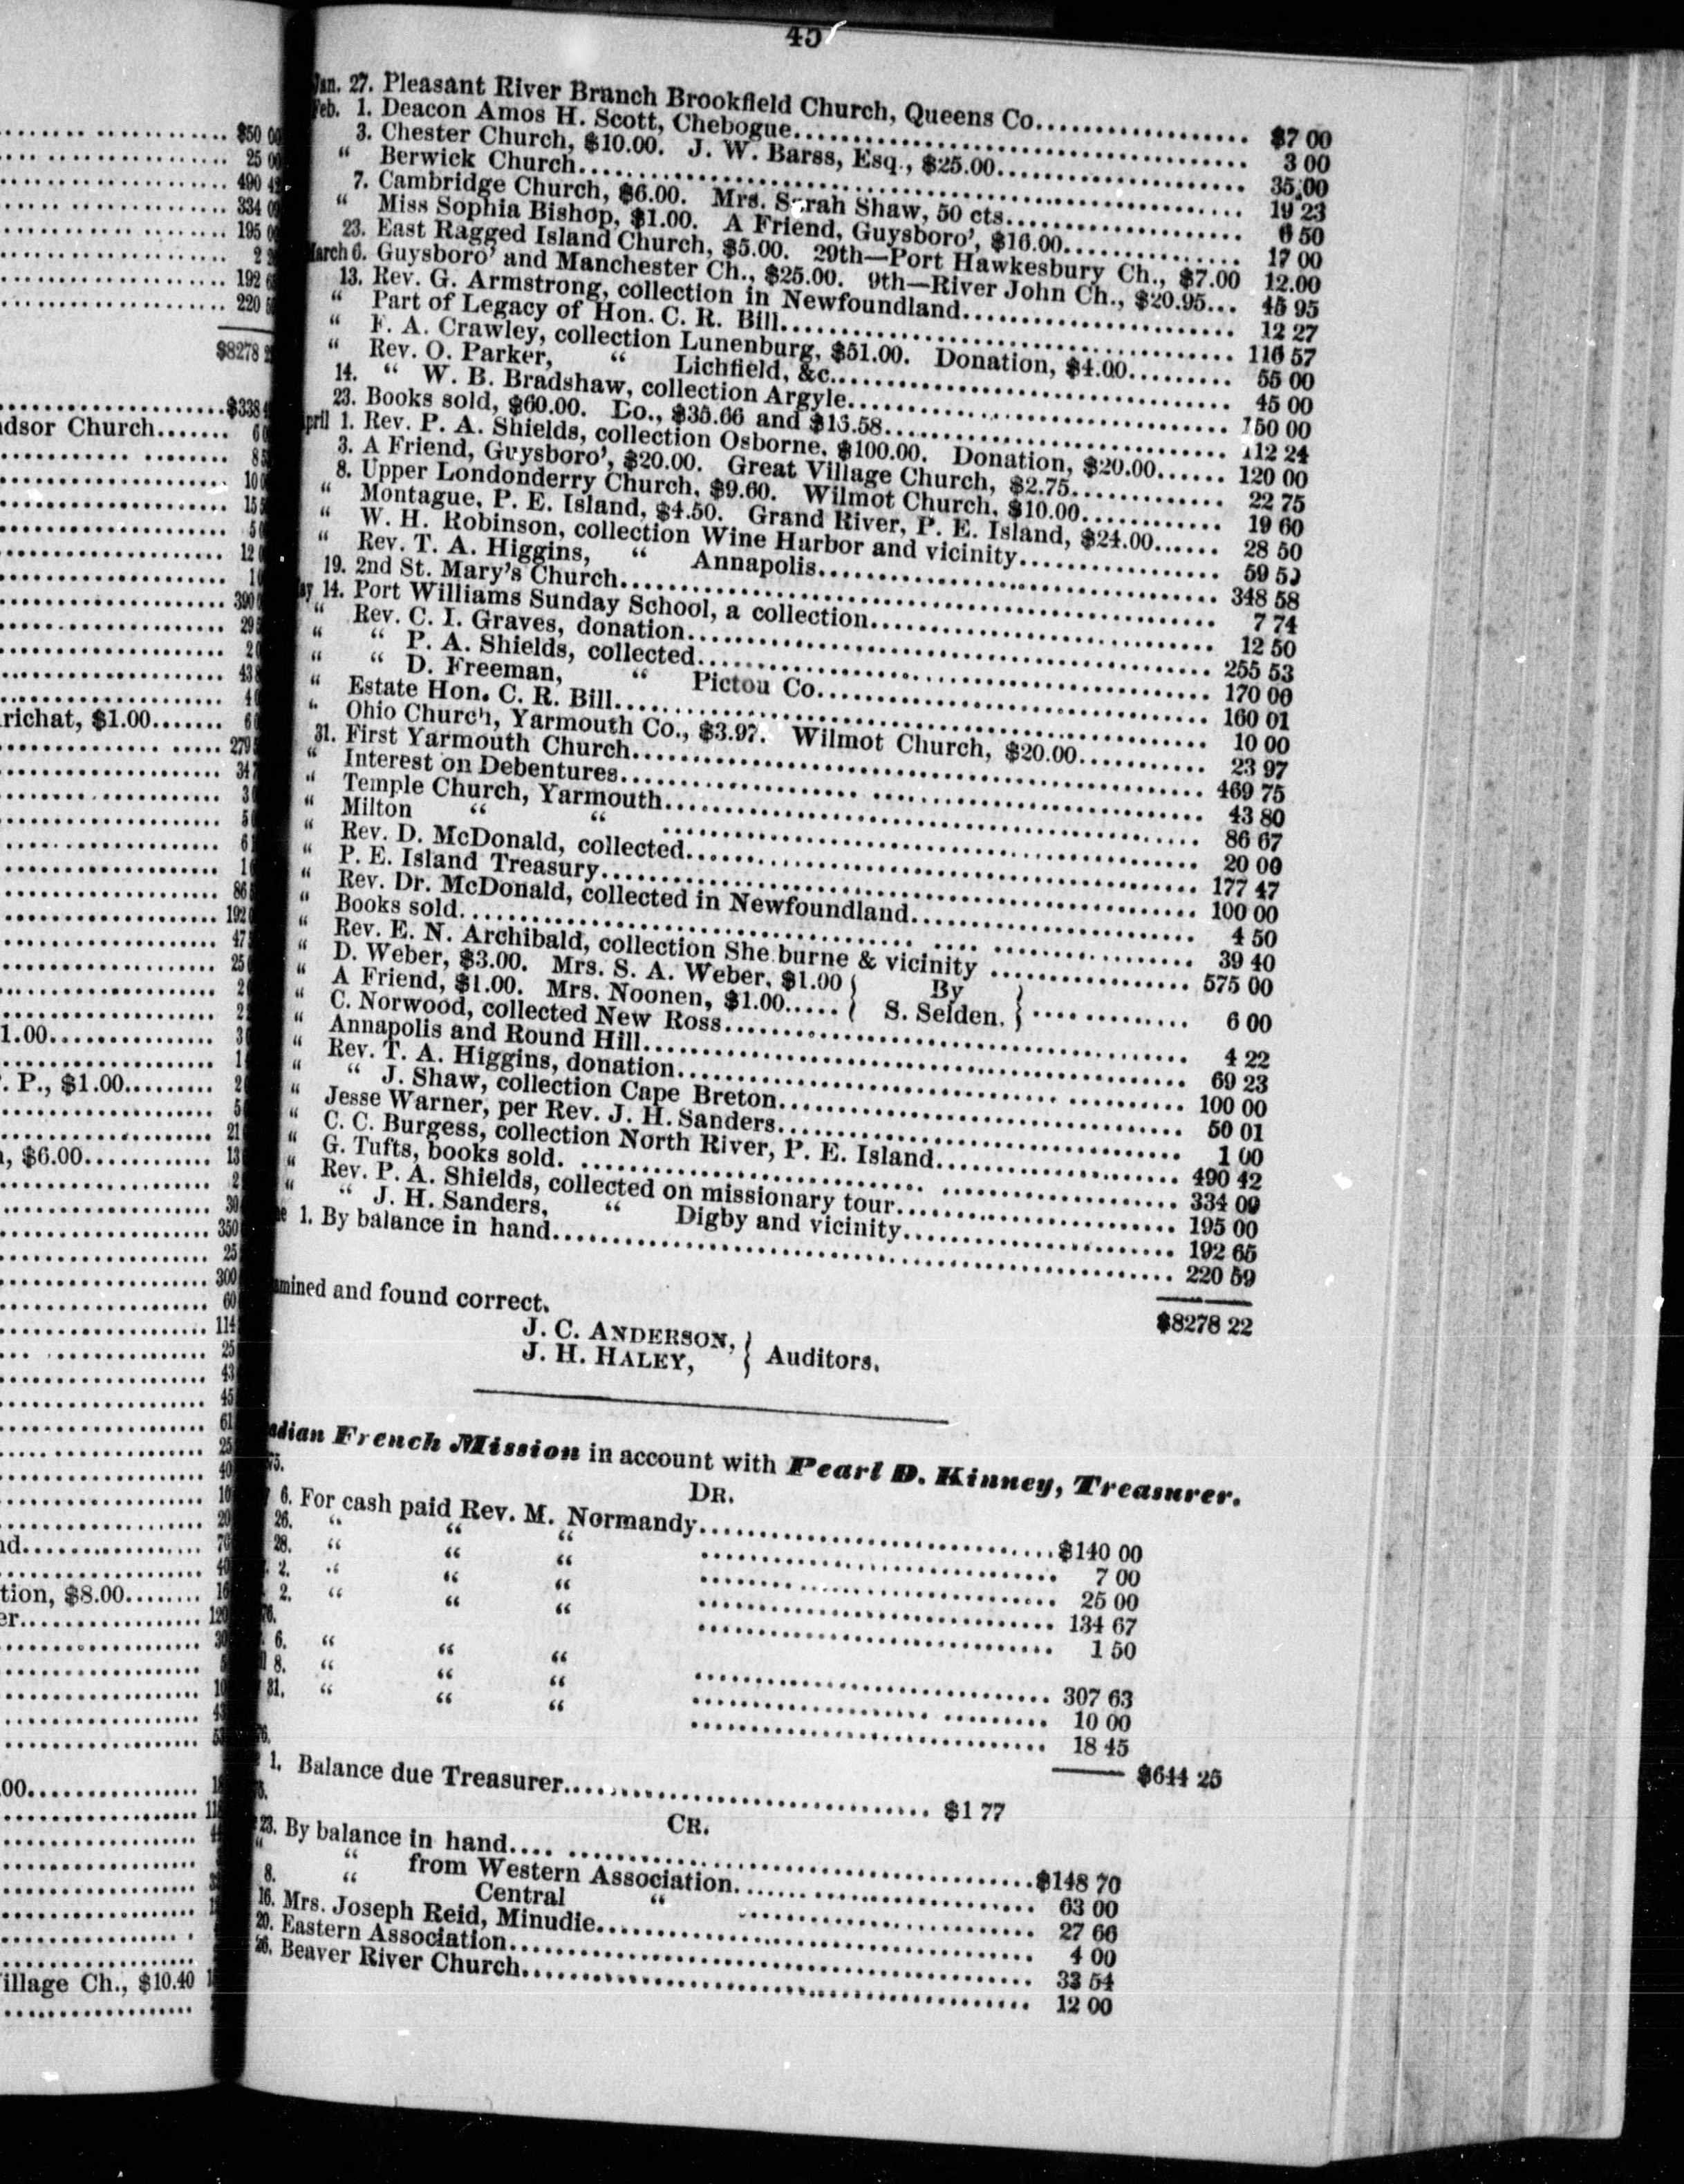 $50 00
25 00
490 42
334 09
195 00
192 65
220 59
$8278 2
$338
dsor Church.......
richat, $1.00.......
1.00................
. P., $1.00.........
, $6.00............
d..................
tion, $8.00........
er.................
00.................
illage Ch., $10.40
45
Jan. 27. Pleasant River Branch Brookfield Church, Queens Co.................. $7 00
Feb. 1. Deacon Amos H. Scott, Chebogue.................. 3 00
3. Chester Church, $10.00. J. W. Barss, Esq., $25.00.................. 35.00
“ Berwick Church.................. 19 23
7. Cambridge Church, $6.00. Mrs. Sarah Shaw, 50 cts.................. 6 50
“ Miss Sophia Bishop, $1.00. A Friend, Guysboro’, $16.00.................. 17 00
23. East Ragged Island Church, $5.00. 29th—Port Hawkesbury Ch., $7.00 12.00
March 6. Guysboro’ and Manchester Ch., $25.00. 9th—River John Ch., $20.95... 45 95
13. Rev. G. Armstrong, collection in Newfoundland.................. 12 27
“ Part of Legacy of Hon. C. R. Bill.................. 116 57
“ F. A. Crawley, collection Lunenburg, $51.00. Donation, $4.00......... 55 00
“ Rev. O. Parker, “ Lichfield, &c.................. 45 00
14. “ W. B. Bradshaw, collection Argyle.................. 150 00
23. Books sold, $60.00. Do., $35.66 and $16.58.................. 112 24
April 1. Rev. P. A. Shields, collection Osborne, $100.00. Donation, $20.00...... 120 00
3. A Friend, Guysboro’, $20.00. Great Village Church, $2.75............. 22 75
8. Upper Londonderry Church, $9.60. Wilmot Church, $10.00............ 19 60
“ Montague, P. E. Island, $4.50. Grand River, P. E. Island, $24.00...... 28 50
“ W. H. Robinson, collection Wine Harbor and vicinity.................. 59 50
“ Rev. T. A. Higgins, “ Annapolis.................. 348 58
19. 2nd St. Mary’s Church.................. 7 74
ay 14. Port Williams Sunday School, a collection.................. 12 50
“ Rev. C. I. Graves, donation.................. 255 53
“ “ P. A. Shields, collected.................. 170 00
“ “ D. Freeman, “ Pictou Co.................. 160 01
“ Estate Hon. C. R. Bill.................. 10 00
“ Ohio Church, Yarmouth Co., $3.97. Wilmot Church, $20.00........... 23 97
31. First Yarmouth Church.................. 469 75
“ Interest on Debentures.................. 43 80
“ Temple Church, Yarmouth.................. 86 67
“ Milton “ “ .................. 20 00
“ Rev. D. McDonald, collected.................. 177 47
“ P. E. Island Treasury.................. 100 00
“ Rev. Dr. McDonald, collected in Newfoundland.................. 4 50
“ Books sold.................. 39 40
“ Rev. E. N. Archibald, collection She burne & vicinity .................. 575 00
“ D. Weber, $3.00. Mrs. S. A. Weber, $1.00 } By
“ A Friend, $1.00. Mrs. Noonen, $1.00..... } S. Selden. } .............. 6 00
“ C. Norwood, collected New Ross.................. 4 22
“ Annapolis and Round Hill.................. 69 23
“ Rev. T. A. Higgins, donation.................. 100 00
“ “ J. Shaw, collection Cape Breton.................. 50 01
“ Jesse Warner, per Rev. J. H. Sanders.................. 1 00
“ C. C. Burgess, collection North River, P. E. Island.................. 490 42
“ G. Tufts, books sold. .................. 334 09
“ Rev. P. A. Shields, collected on missionary tour.................. 195 00
“ “ J. H. Sanders, “ Digby and vicinity.................. 192 65
ne 1. By balance in hand.................. 220 59
$8278 22
amined and found correct.
J. C. ANDERSON, }
J. H. HALEY, } Auditors.
adian French Mission in account with Pearl D. Kinney, Treasurer.
75.
DR.
6. For cash paid Rev. M. Normandy.................. $140 00
26. “ “ “ .................. 7 00
28. “ “ “ .................. 25 00
2. “ “ “ .................. 134 67
2. “ “ “ .................. 1 50
76.
6. “ “ “ .................. 307 63
8. “ “ “ .................. 10 00
31. “ “ “ .................. 18 45
$644 25
76.
1. Balance due Treasurer.................. $1 77
CR.
23. By balance in hand.................. $148 70
“ “ from Western Association.................. 63 00
8. “ Central “ .................. 27 66
16. Mrs. Joseph Reid, Minudie.................. 4 00
20. Eastern Association.................. 33 54
26. Beaver River Church.................. 12 00